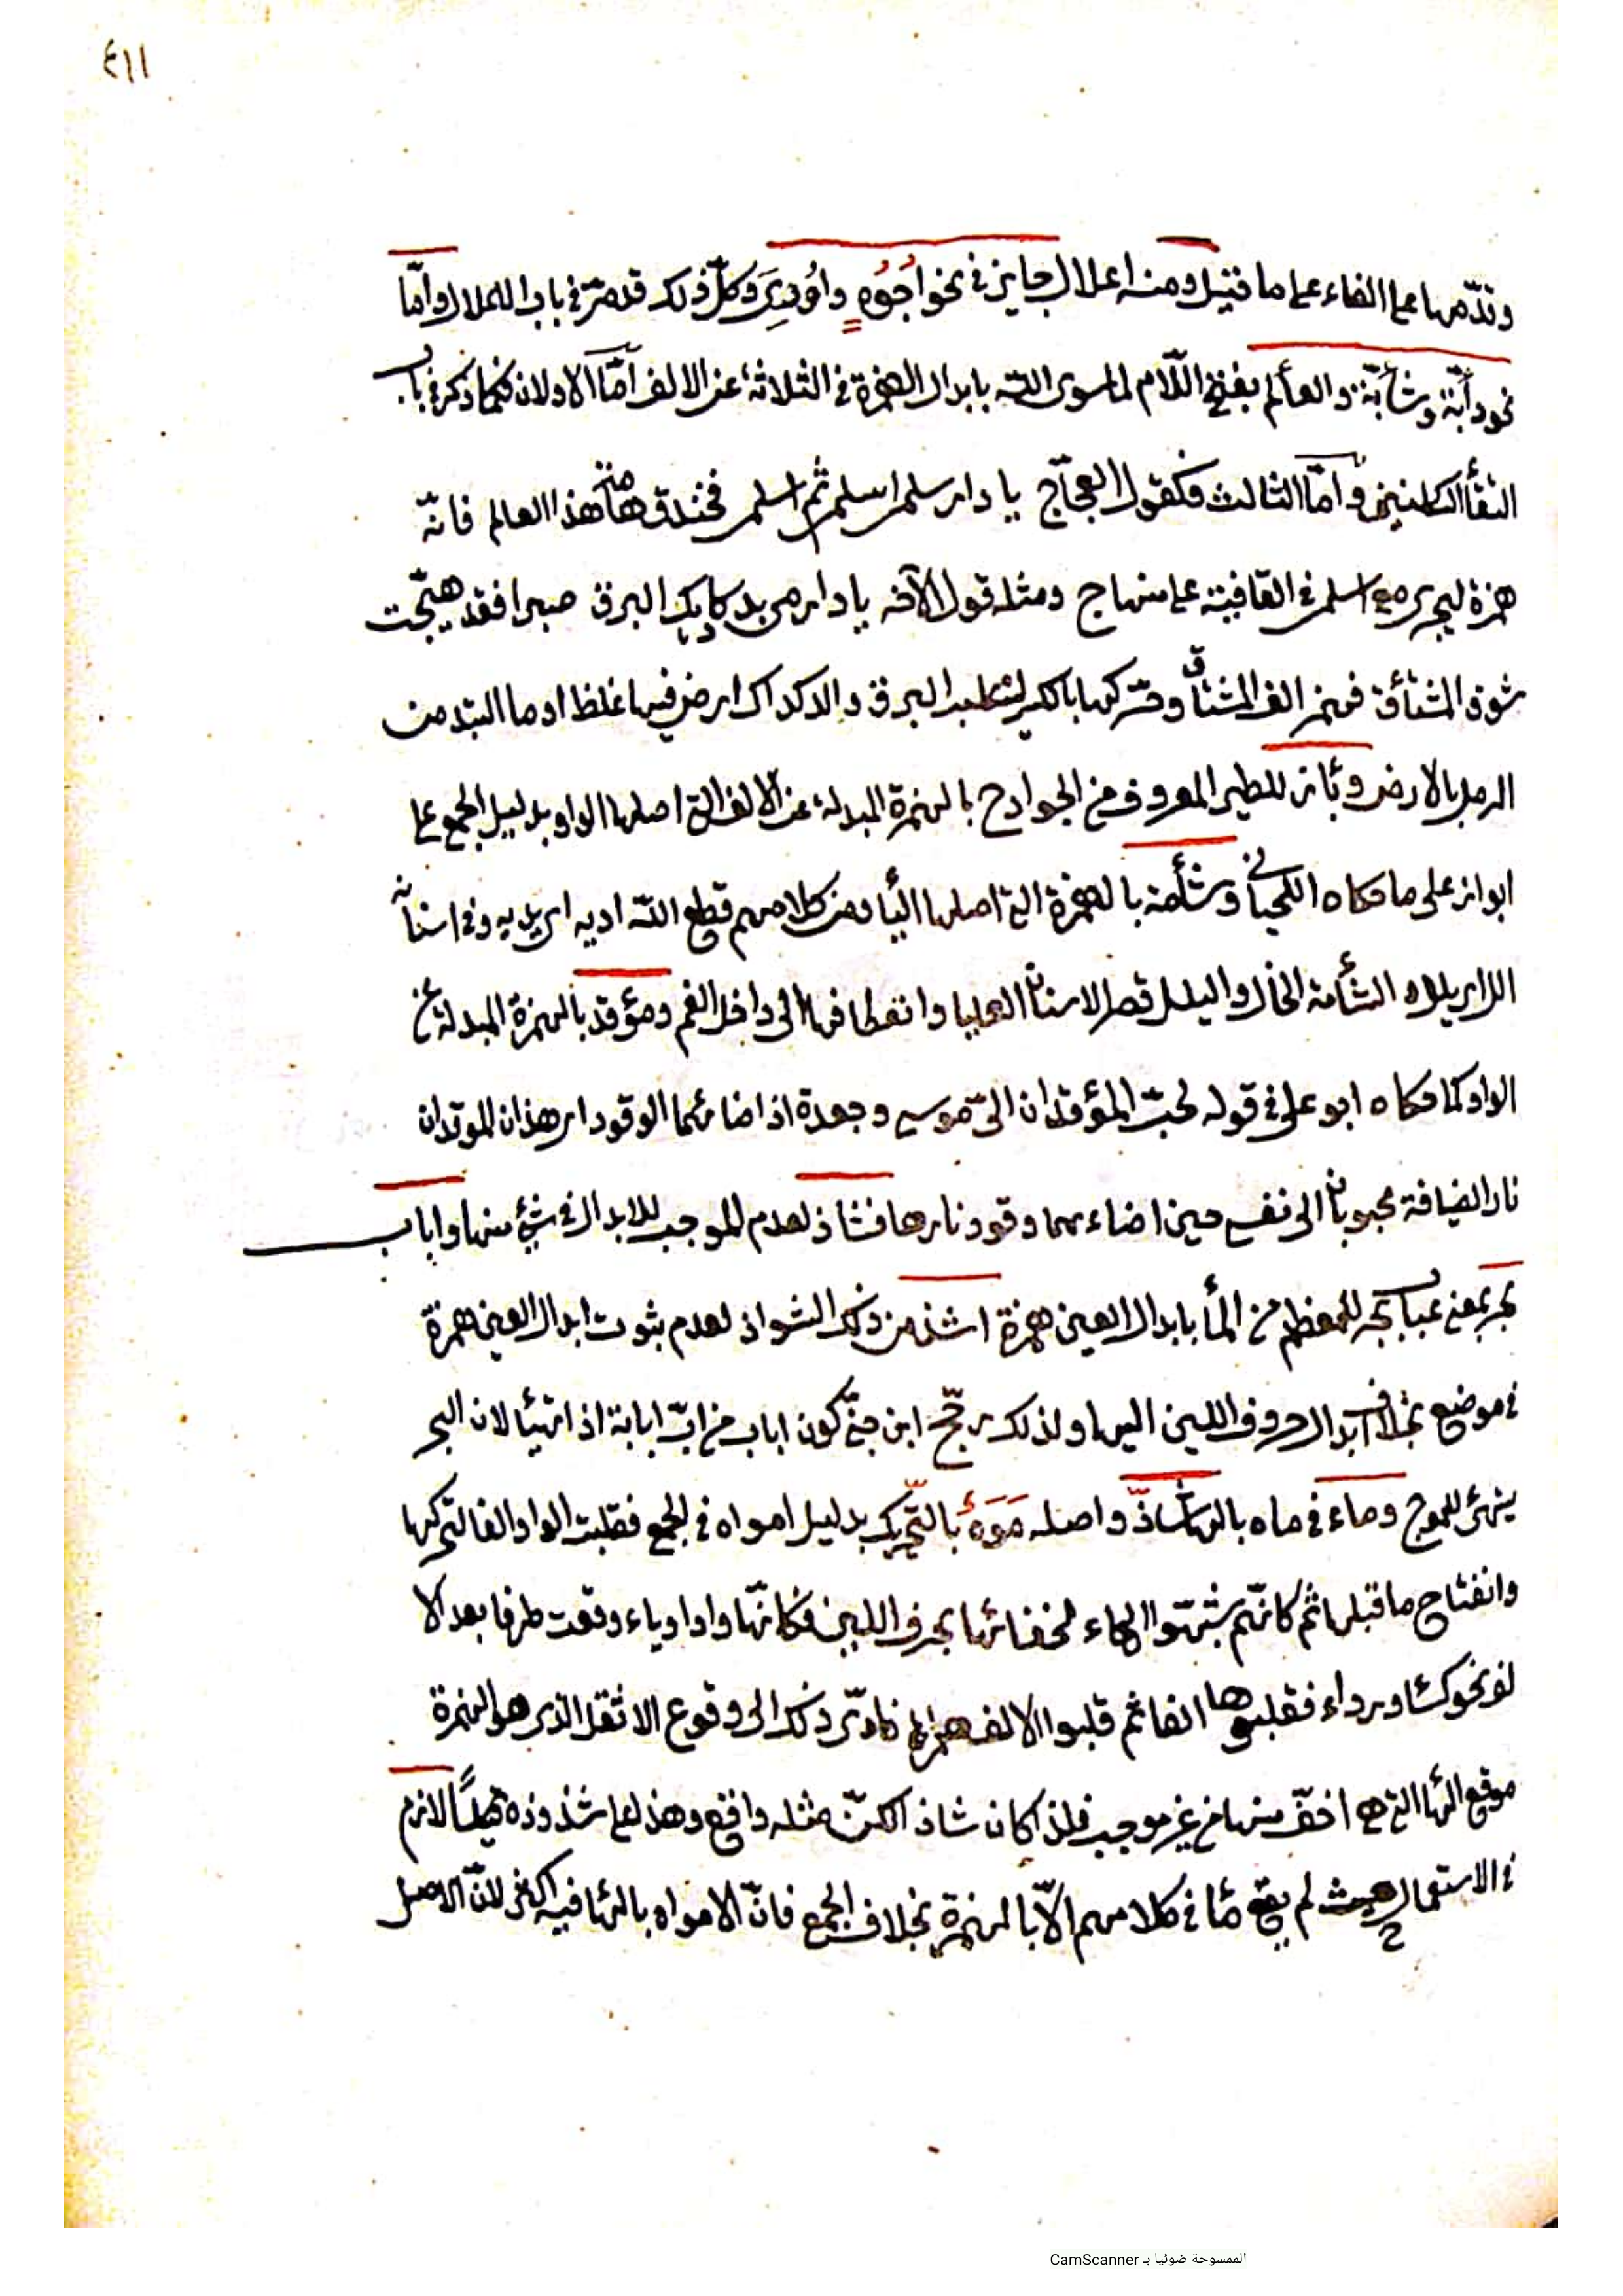 ٤١١
وقدّمها على الفاء على ما قيل ومنه اعلال جايز في نحو اُجُوُه واُوْرِيَ وكلّ ذلك قد مرّ في باب الاعلال وامّا
نحو دأبّة وشأبّة والعألم بفتح اللّام لما سوى اللّه بابدال الهمزة في الثلاثة عن الالف امّا الاولان فكما ذكر في باب
التقأ الساكنين وامّا الثالث فكقول العجّاج يا دار سلمى اسلمي ثم اسلمي فخندق هامة هذا العالم فانّه
همزة ليجرى مع اسلمي في القافية على منهاج ومثله قول الآخر يا دار مي بدكاديك البرق صبرا فقد هيّجت
شوق المشتأق فهمز الف المشتاق وحرّكها بالكسر البرق والدكداك ارض فيها غلظ او ما التبد من
الرمل بالارض وبأز للطير المعروف من الجوارح بالهمزة المبدلة عن الالف التي اصلها الواو بدليل الجمع على
ابواز على ما حكاه اللحياني وشئمة بالهمزة التي اصلها اليأ ومن كلامهم قطع اللّه اديه اي يديه وفي اسنانه
الل اي يلل الشأمة الخال واليلل قصر الاسنان العليا وانعطافها الى داخل الفم ومؤقد بالهمزة المبدلة عن
الواو كما حكاه ابو على في قوله لحبّ المؤقدان الىّ موسى وجعدة اذ اضائهما الوقود اي هذان الموقدان
نار الضيافة محبوبان الى نفسي حين اضاءهما وقود نارها فشاذ لعدم الموجب للابدال في شئ منها واباب
بحر بمعنى عباب بحر للمعظم من المأ بابدال العين همزة اشذ من ذلك الشواذ لعدم ثبوت ابدال العين همزة
في موضع بخلاف ابدال حروف اللين اليها ولذلك رجّح ابن جنّي كون اباب من ابّ ابابة اذا تهيّأ لان البحر
يتهئ للموج وماء في ماه بالهاء شاذّ واصله مَوَهٌ بالتحريك بدليل امواه في الجمع فقلبت الواو الفا لتحركها
وانفتاح ما قبلها ثم كانّهم شبّهوا الهاء لخفائها بحرف اللين فكانّها واو او ياء وقعت طرفا بعد الا
لف نحو كساء ورداء فقلبوها الفا ثم قلبوا الالف همزة فادّى ذلك الى وقوع الاثقل الذي هو الهمزة
موقع الهأ التي هي اخفّ منها من غير موجب فلذا كان شاذ لكنّ مثله واقع وهذا على شذوذه لازم
في الاستعمال بحيث لم يقع مأ في كلامهم الّا بالهمزة بخلاف الجمع فانّ الامواه بالهأ فيه اكثر لانّ الاصل
الممسوحة ضوئيا بـ CamScanner